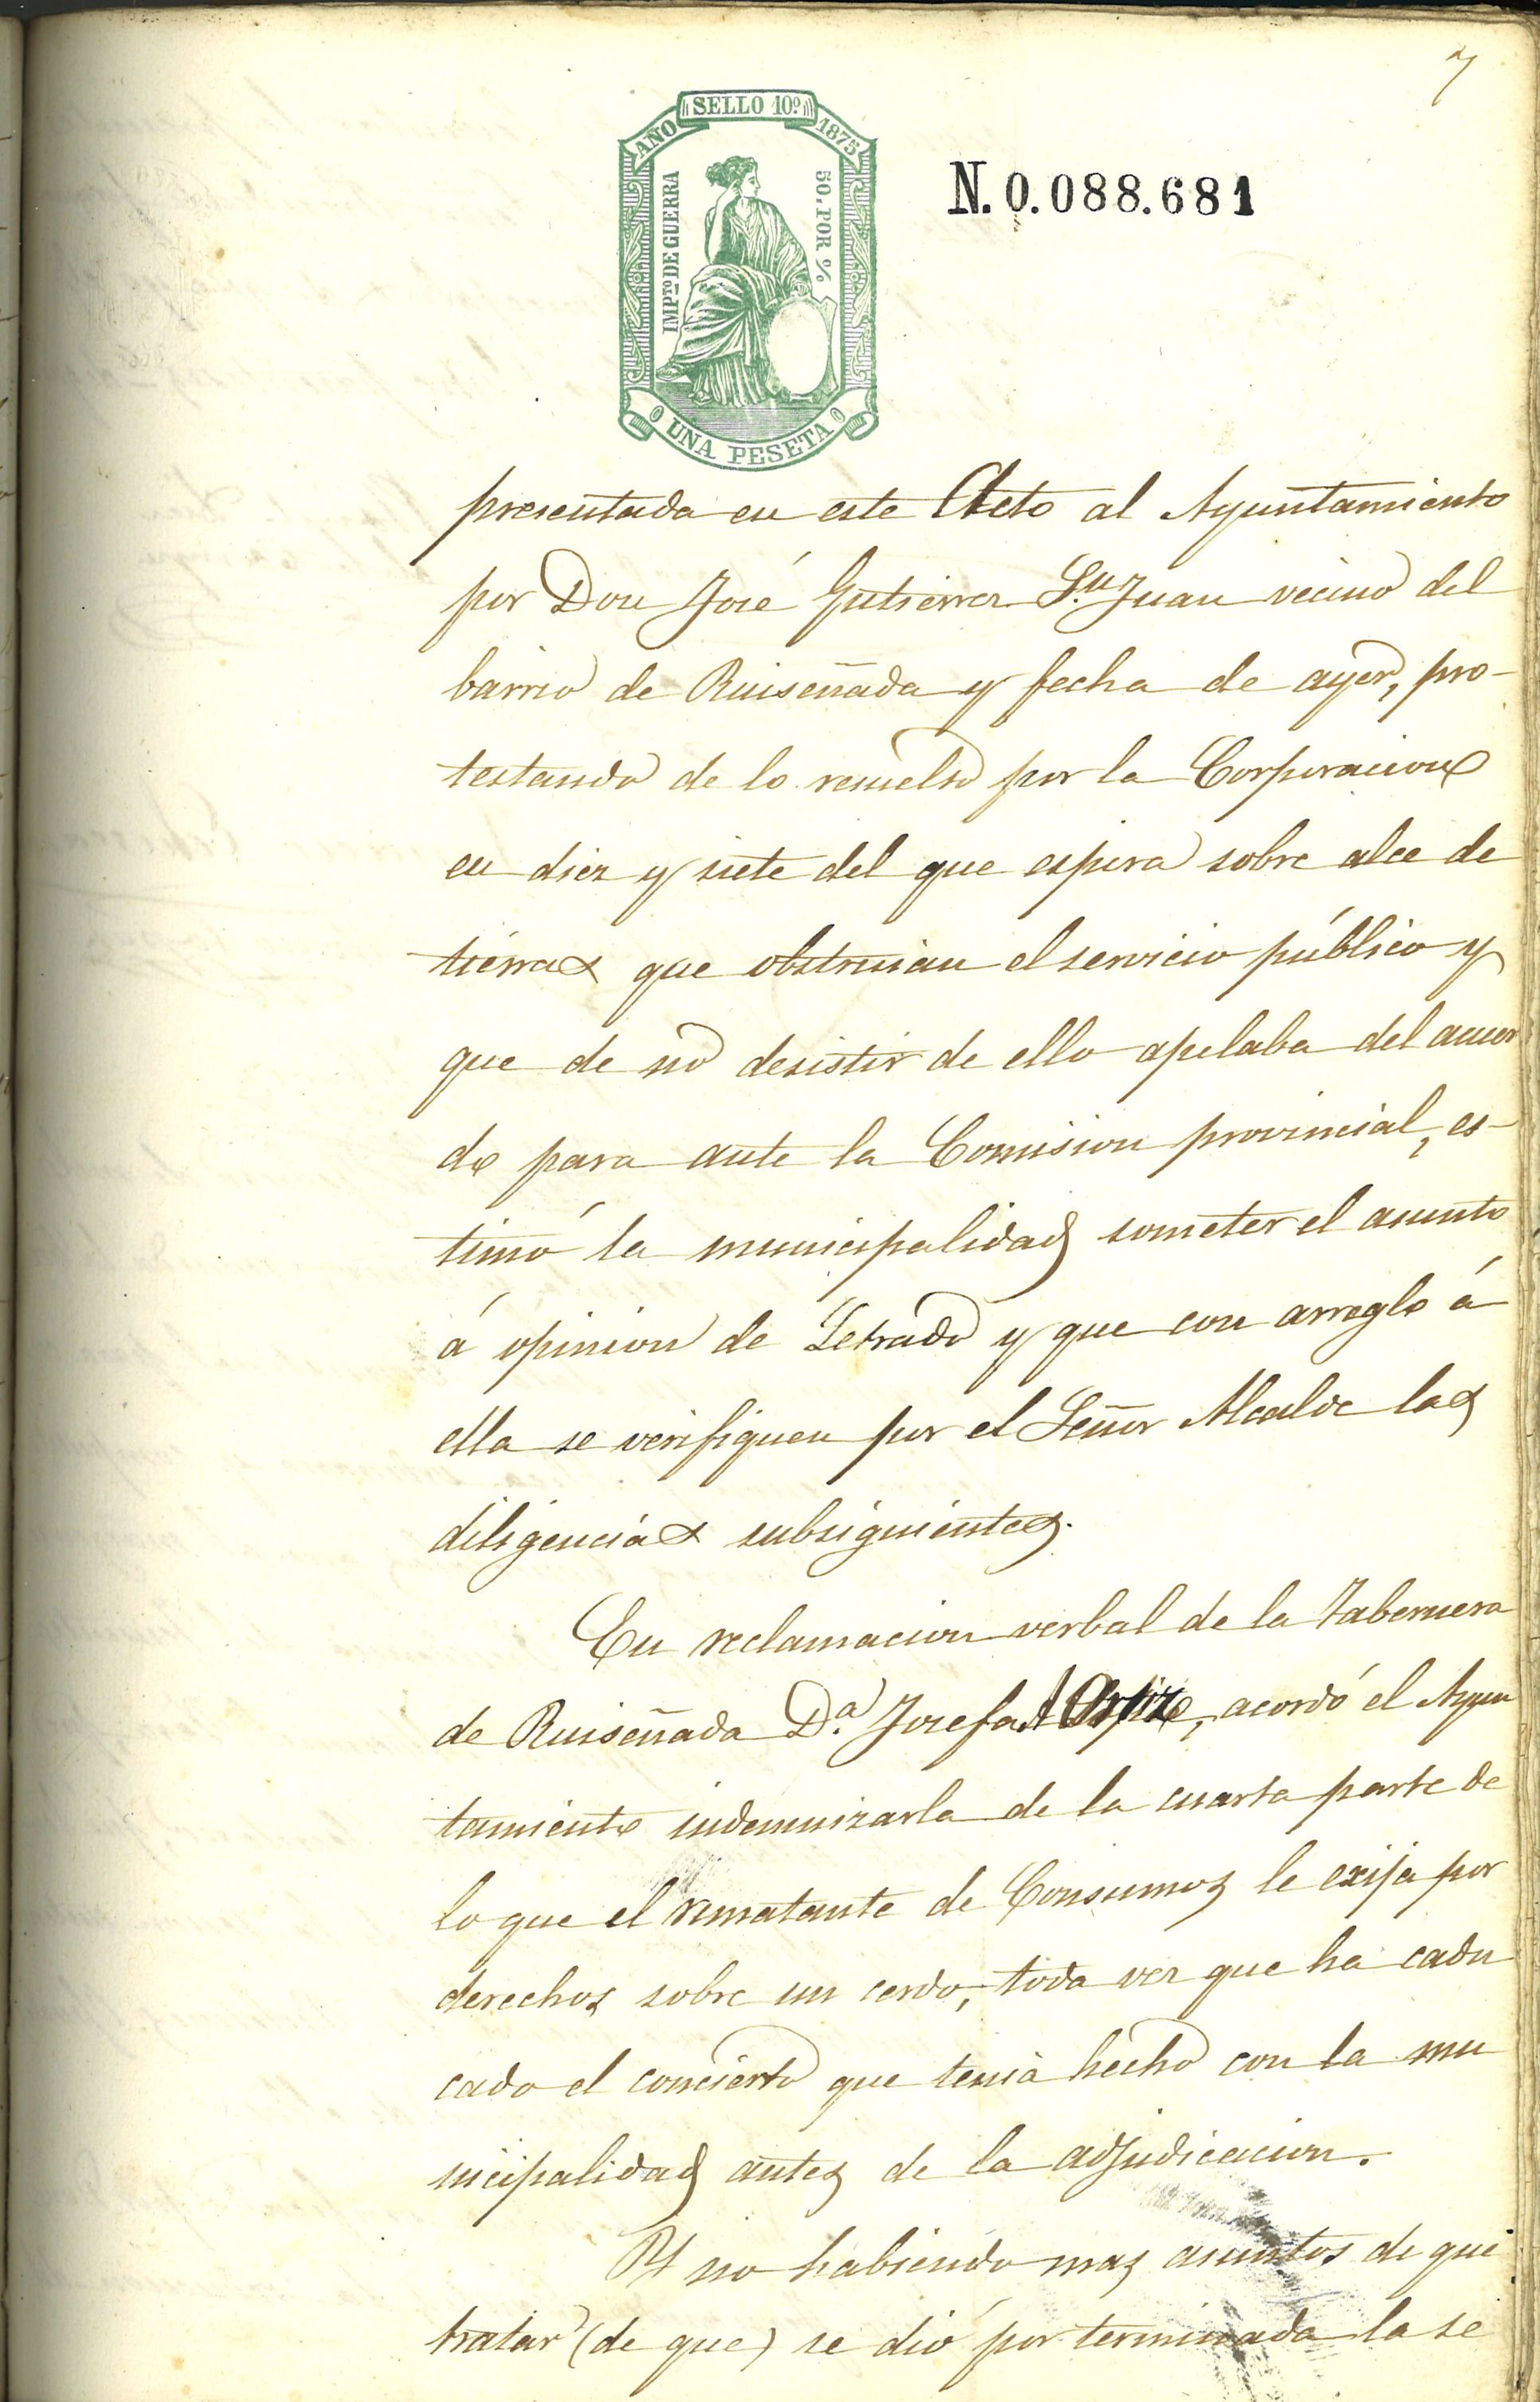 7
SELLO 10º
AÑO 1875
IMPTO DE GUERRA
50. POR %
UNA PESETA
N. 0.088.681
presentada en este Acto al Ayuntamiento
por Don José Gutierrez Sn Juan vecino del
barrio de Ruiseñada y fecha de ayer, pro-
testando de lo resuelto por la Corporacion
en diez y siete del que espira sobre alce de
tierras que obstruian el servicio público y
que de no desistir de ello apelaba del acuer
do para ante la Comision provincial, es-
timó la municipalidad someter el asunto
á opinion de Letrado y que con arreglo á
ella se verifiquen por el Señor Alcalde las
diligencias subsiguientes.
En reclamacion verbal de la Tabernera
de Ruiseñada D.ª Josefa Ortiz, acordó el Ayun
tamiento indemnizarla de la cuarta parte de
lo que el rematante de Consumos le exija por
derechos sobre un cerdo, toda vez que ha cadu
cado el concierto que tenia hecho con la mu
nicipalidad antes de la adjudicacion.
Y no habiendo mas asuntos de que
tratar (de que) se dió por terminada la se